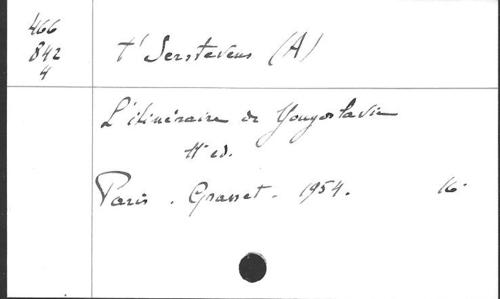 466
842
4
t'Serstevens (A)
L'itinéraire de Yougoslavie
ed.
Paris. Grasset. 1954. 16.